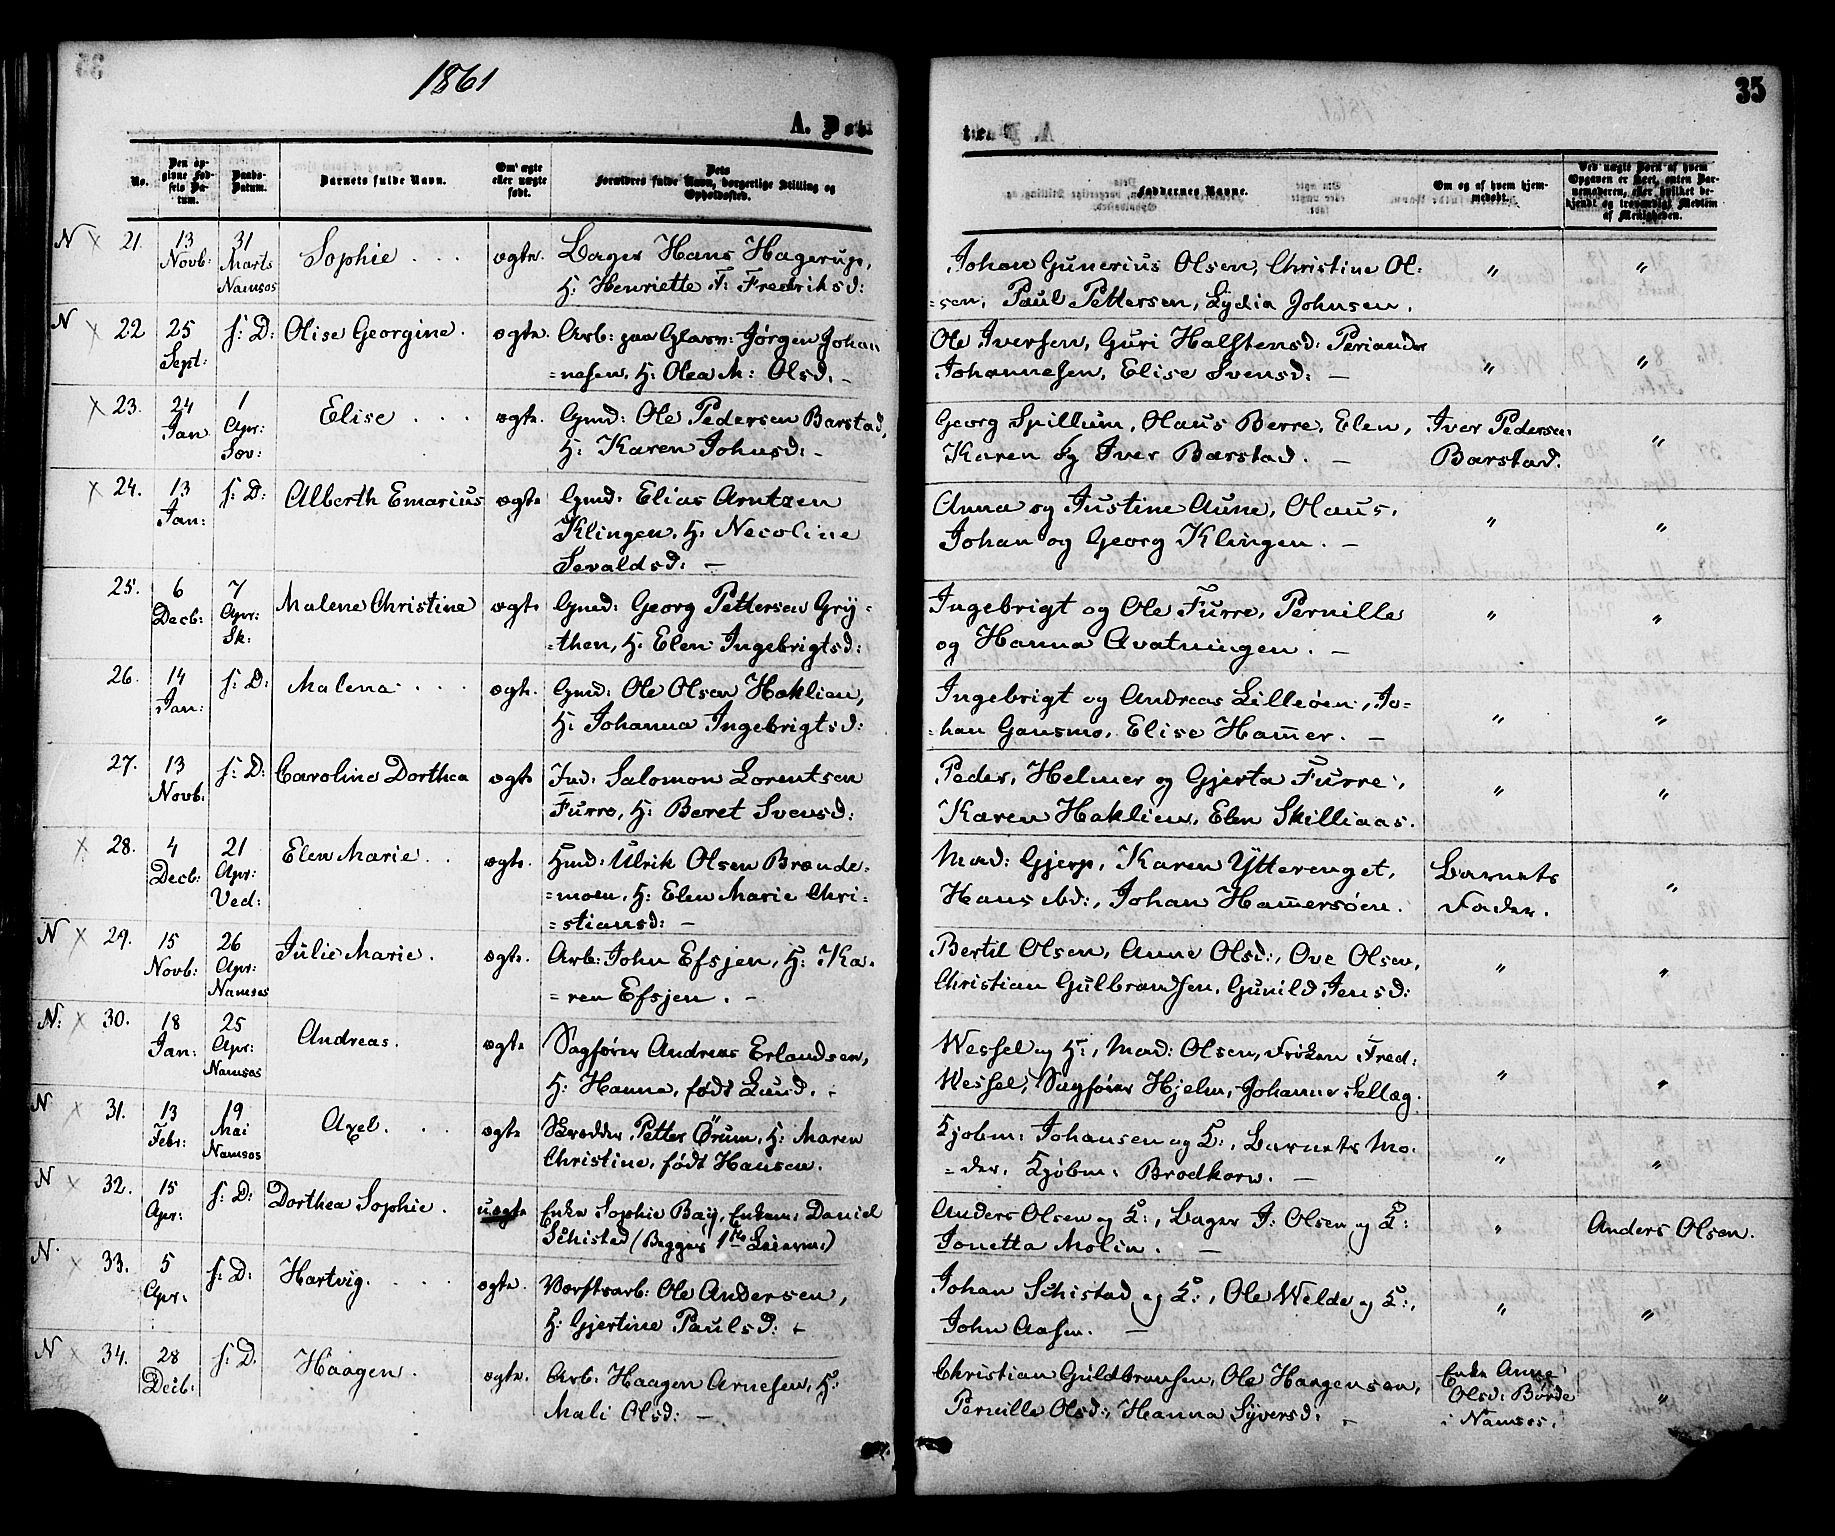 1861
35
A. Døb-
te.
No.
Den op-
givne Fød-
sels Da-
tum.
Daabs-
Datum.
Barnets fulde Navn.
Om ægte
eller uægte
født.
Dets
Forældres fulde Navn, borgerlige Stilling og
Opholdssted.
Faddernes Navne.
Om og af hvem hjem-
medøbt.
Ved uægte Børn af hvem
Opgaven er skeet, enten Bar-
nemoderen, eller hvilket be-
kjendt og troværdigt Medlem
af Menigheden.
N × 21. 13 Novb: 31 Marts Namsos Sophie . . . ægte. Bager Hans Hagerup,
H: Henriette F: Fredriksd:
Johan Gunerius Olsen, Christine Ol:
=sen, Paul Pettersen, Lydia Johnsen. " "
N × 22 25 Sept: s: D: Olise Georgine. ægte. Arb: paa Glasv: Jørgen Johan
=nesen, H: Olea M: Olsd. –
Ole Iversen, Guri Halstensd: Periander
Johannesen, Elise Svensd: – " "
× 23. 24 Jan 1 Apr: Søv: Elise . . . ægte. Gmd: Ole Pedersen Barstad,
H: Karen Johnsd: –
Georg Spillum, Olaus Berre, Elen,
Karen og Iver Barstad. – Iver Pedersen
Barstad. "
× 24. 13 Jan: s: D: Alberth Emarius ægte Gmd: Elias Arntzen
Klingen, H: Necoline
Sevaldsd: –
Anna og Justine Aune, Olaus,
Johan og Georg Klingen. – " "
25. 6 Decb: 7 Apr: Sk: Malene Christine ægte Gmd: Georg Pettersen Grÿ-
=then, H: Elen Ingebrigtsd:
Ingebrigt og Ole Furre, Pernille
og Hanna Avatningen. – " "
26. 14 Jan: s: D: Malena . . . ægte. Gmd: Ole Olsen Haklien,
H: Johanna Ingebrigtsd:
Ingebrigt og Andreas Lilleøen, Jo-
=han Gansmo, Elise Ham̅er. – " "
27. 13 Novb: s: D: Caroline Dorthea ægte Ind: Salomon Lorentsen
Furre, H: Beret Svensd:
Peder, Helmer og Gjerta Furre,
Karen Haklien, Elen Skilliaas. " "
× 28. 4 Decb: 21 Apr: Ved: Elen Marie . . ægte. Hmd: Ulrik Olsen Brænde-
=moen, H: Elen Marie Chri-
=stiansd: –
Mad: Gjerp, Karen Ytterenget,
Hans ibd:, Johan Ham̅ersøen. Barnets
Fader. "
N × 29. 15 Novb: 26 Apr: Namsos Julie Marie. ægte. Arb: John Efsjen, H: Ka-
=ren Efsjen. –
Bertil Olsen, Anne Olsd:, Ove Olsen,
Christian Gulbrandsen, Gunild Jensd: " "
N: × 30. 18 Jan: 25 Apr: Namsos Andreas. ægte Sagfører Andreas Erlandsen,
H: Hanna, født Lund. -
Wessel og H:, Mad: Olsen, Frøken Fred:
Wessel, Sagfører Hjelm, Johanne Sellæg. " "
N × 31. 13 Febr: 19 Mai Namsos Axel. . . ægte Skrædder Petter Ørum, H: Maren
Christine, født Hansen.
Kjøbm: Johansen og H:, Barnets Mo-
=der, Kjøbm: Brodkorw. – " "
N × 32. 15 Apr: s: D: Dorthea Sophie. uægte Enke Sophie Baÿ, Enkem: Daniel
Schistad (Begges 1ste Leierm:)
Anders Olsen og H:, Bager J: Olsen og H:
Jonetta Molin. – " Anders Olsen.
N. × 33. 5 Apr: s: D: Hartvig. . . . ægte. Værftsarb: Ole Andersen,
H: Gjertine Paulsd: -
Johan Schistad og H:, Ole Welde og H:,
John Aasen. – " "
N × 34. 28 Decb: s: D. Haagen. ægte. Arb: Haagen Arnesen, H:
Mali Olsd: –
Christian Guldbransen, Ole Haagensen,
Pernille Olsd:, Hanna Syversd: – Enke Anne
Olsd: Børde
i Namsos. "